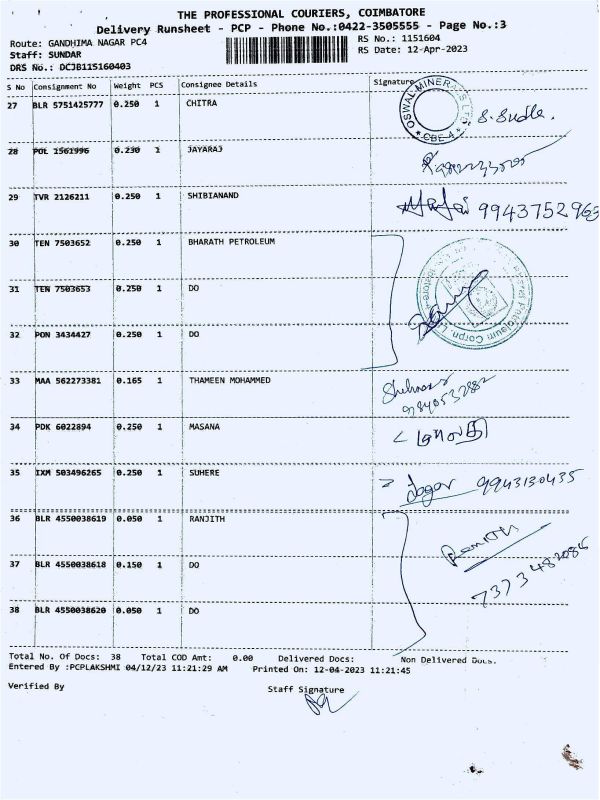 THE PROFESSIONAL COURIERS, COIMBATORE
Delivery Runsheet - PCP - Phone No.:0422-3505555 - Page No.:3
Route: GANDHIMA NAGAR PC4
RS No.: 1151604
Staff: SUNDAR
RS Date: 12-Apr-2023
DRS No.: DCJB115160403
S No Consignment No Weight PCS Consignee Details Signature
27 BLR 5751425777 0.250 1 CHITRA
OSWAL MINERALS CBE-4
28 POL 1561996 0.230 1 JAYARAJ
29 TVR 2126211 0.250 1 SHIBIANAND 9943752963
30 TEN 7503652 0.250 1 BHARATH PETROLEUM
Petroleum Corpn.
31 TEN 7503653 0.250 1 DO
32 PON 3434427 0.250 1 DO
33 MAA 562273381 0.165 1 THAMEEN MOHAMMED
9840532882
34 PDK 6022894 0.250 1 MASANA மாலதி
35 IXM 503496265 0.250 1 SUHERE 9943130435
36 BLR 4550038619 0.050 1 RANJITH
37 BLR 4550038618 0.150 1 DO
7373482086
38 BLR 4550038620 0.050 1 DO
Total No. Of Docs: 38 Total COD Amt: 0.00 Delivered Docs: Non Delivered Docs.
Entered By :PCPLAKSHMI 04/12/23 11:21:29 AM Printed On: 12-04-2023 11:21:45
Verified By
Staff Signature